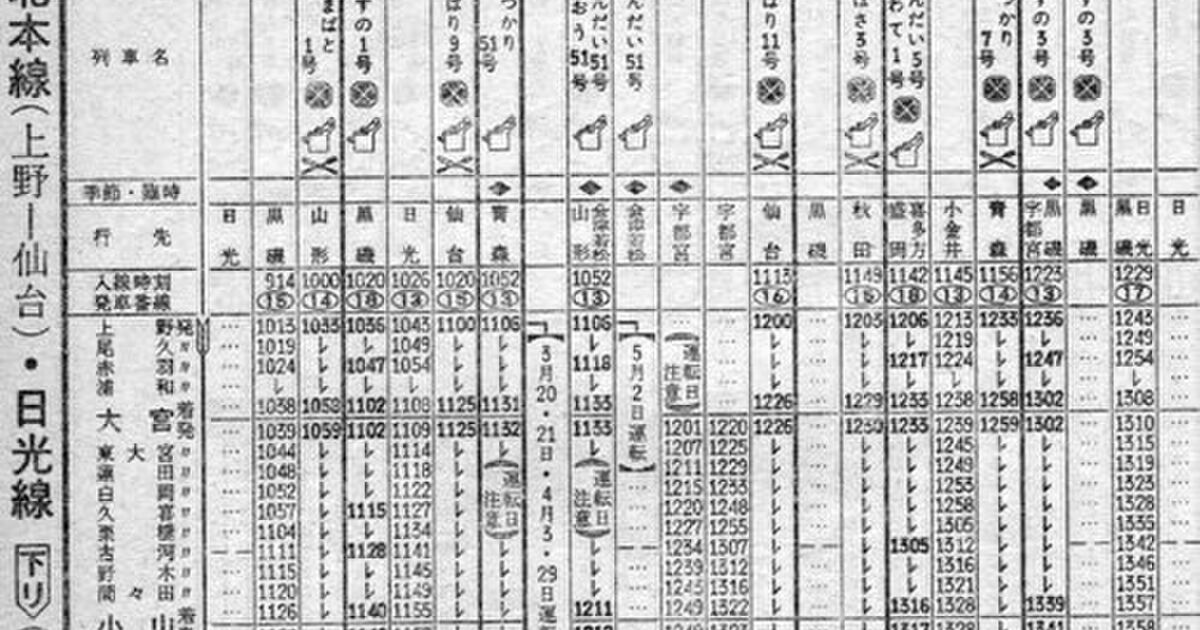 北本線(上野ー仙台)・日光線 下り
列車名 まばと1号 ずの1号 ばり9号 つかり51号 んだい51号 おう51号 んだい51号 ばり11号 ばさ3号 んだい5号 わて1号 つかり7号 ずの3号 ずの3号
季節・臨時
行先 日光 黒磯 山形 黒磯 日光 仙台 青森 会津若松 山形 会津若松 宇都宮 宇都宮 仙台 黒磯 秋田 喜多方 盛岡 小金井 青森 黒磯 宇都宮 黒磯 日光 黒磯 日光
入線時刻 914 1000 1020 1026 1020 1052 1052 1113 1149 1142 1145 1156 1223 1229
発車番線 ⑮ ⑭ ⑱ ⑬ ⑮ ⑬ ⑬ ⑯ ⑮ ⑱ ⑬ ⑭ ⑬ ⑰
上野発 … 1013 1033 1036 1043 1100 1106 1106 … … 1200 … 1203 1206 1213 1233 1236 … 1243
尾久〃 … 1019 レ レ 1049 レ レ レ … レ … レ レ 1219 レ レ … 1249
赤羽〃 … 1024 レ 1047 1054 レ レ 1118 … レ … レ 1217 1224 レ 1247 … 1254
浦和〃 … レ レ レ レ レ レ レ … レ … レ レ レ レ レ … レ
大宮着 … 1038 1058 1102 1108 1125 1131 1133 … 1226 … 1229 1233 1238 1258 1302 … 1308
発 … 1039 1059 1102 1109 1125 1132 1133 1201 1220 1226 … 1230 1233 1239 1259 1302 … 1310
東大宮〃 … 1044 レ レ 1114 レ レ レ 1207 1225 レ … レ レ 1245 レ レ … 1315
蓮田〃 … 1048 レ レ 1118 レ 1211 1229 レ … レ レ 1249 レ レ … 1319
白岡〃 … 1052 レ レ 1122 レ 1215 1233 レ … レ レ 1253 レ レ … 1323
久喜〃 … 1057 レ 1115 1127 レ … 1220 1248 レ … レ レ 1258 レ レ … 1328
栗橋〃 … 1104 レ レ 1134 レ … 1227 1255 レ … レ レ 1305 レ レ … 1335
古河〃 1111 レ 1128 1141 レ レ レ 1234 1307 レ レ 1305 1312 レ レ 1342
野木〃 … 1115 レ レ 1145 レ レ レ … 1239 1312 レ … レ レ 1316 レ レ … 1346
間々田〃 … 1120 レ レ 1149 レ レ レ … 1245 1316 レ … レ レ 1321 レ レ … 1351
小山着 … 1126 レ 1140 1155 レ レ 1211 … 1249 1322 レ … レ 1316 1328 レ 1339 … 1357
3月20・21日・4月3・29日運
5月2日運転
運転日注意
運転日注意
運転日注意